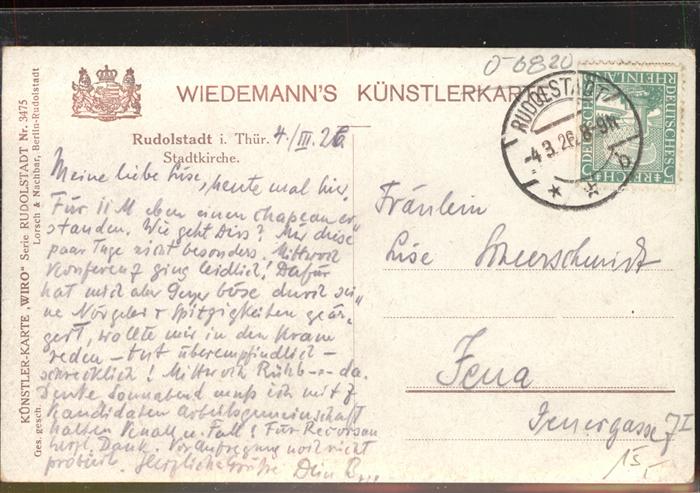 0-6820
WIEDEMANN'S KÜNSTLERKAR
RUDOLSTADT
-4.3.26. 8-9N.
DEUTSCHES REICH
RHEINLAND
5
Rudolstadt i. Thür. 4./III. 26
Stadtkirche.
Meine liebe Lise, heute mal hier,
Für 11 M eben einen chapeau er-
standen. Wie geht Dirs? Mir diese
paar Tage nicht besonders. Mittwoch
Konferenz ging leidlich! Dafür
hat mich aber böse durch sei-
ne Nörgelei + Spitzigkeiten geär-
gert, wollte mir in den Kram
reden – tut überempfindlich –
schrecklich! Mittwoch da.
Heute Sonnabend muß ich mit 7
Kandidaten Arbeitsgemeinschaft
halten u. Fall! Für
herzl. Dank. noch nicht
probiert. Herzliche Grüße Dein
Fräulein
Lise Scheerschmidt
Jena
Jenergasse 7 I
KÜNSTLER-KARTE „WIRO" Serie RUDOLSTADT Nr. 3475
Ges. gesch. Lorsch & Nachbar, Berlin-Rudolstadt